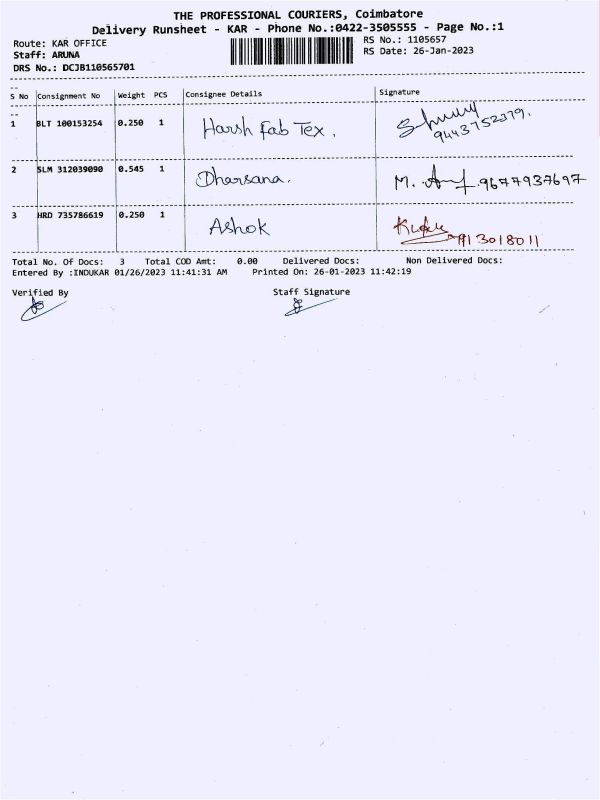 THE PROFESSIONAL COURIERS, Coimbatore
Delivery Runsheet - KAR - Phone No.:0422-3505555 - Page No.:1
Route: KAR OFFICE
RS No.: 1105657
Staff: ARUNA
RS Date: 26-Jan-2023
DRS No.: DCJB110565701
S No Consignment No Weight PCS Consignee Details Signature
1 BLT 100153254 0.250 1 Harsh Fab Tex.
9443752379.
2 SLM 312039090 0.545 1 Dharsana. M. 9677937697
3 HRD 735786619 0.250 1 Ashok
Total No. Of Docs: 3 Total COD Amt: 0.00 Delivered Docs: Non Delivered Docs:
Entered By :INDUKAR 01/26/2023 11:41:31 AM Printed On: 26-01-2023 11:42:19
Verified By Staff Signature